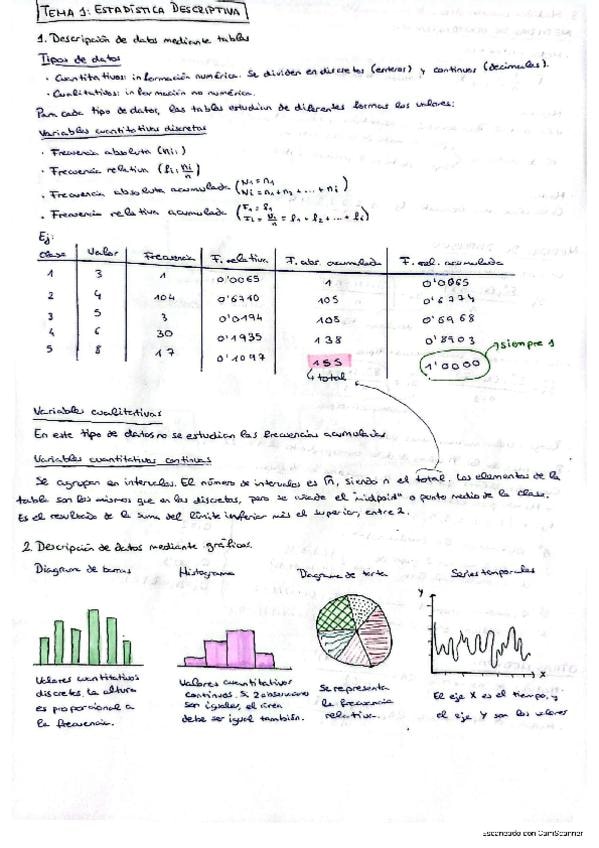 TEMA 1: ESTADÍSTICA DESCRIPTIVA
1. Descripción de datos mediante tablas
Tipos de datos
· Cuantitativos: información numérica. Se dividen en discretos (enteros) y continuos (decimales).
· Cualitativos: información no numérica.
Para cada tipo de datos, las tablas estudian de diferentes formas los valores:
Variables cuantitativas discretas
· Frecuencia absoluta (ni)
· Frecuencia relativa (fi: ni/n)
· Frecuencia absoluta acumulada (N1 = n1 Ni = n1 + n2 + ... + ni)
· Frecuencia relativa acumulada (F1 = f1 Fi = Ni/n = f1 + f2 + ... + fi)
Ej:
Clase Valor Frecuencia F. relativa F. abs. acumulada F. rel. acumulada
1 3 1 0'0065 1 0'0065
2 4 104 0'6710 105 0'6774
3 5 3 0'0194 108 0'6968
4 6 30 0'1935 138 0'8903
5 8 17 0'1097 155 1'0000
siempre 1
total
Variables cualitativas
En este tipo de datos no se estudian las frecuencias acumuladas.
Variables cuantitativas continuas
Se agrupan en intervalos. El número de intervalos es √n, siendo n el total. Los elementos de la
tabla son los mismos que en las discretas, pero se añade el "midpoid" o punto medio de la clase.
Es el resultado de la suma del límite inferior más el superior, entre 2.
2. Descripción de datos mediante gráficos.
Diagrama de barras Histograma Diagrama de tarta Series temporales
Y
X
Valores cuantitativos
discretos. La altura
es proporcional a
la frecuencia.
Valores cuantitativos
continuos. Si 2 observaciones
son iguales, el área
debe ser igual también.
Se representa
la frecuencia
relativa.
El eje X es el tiempo, y
el eje Y son los valores
Escaneado con CamScanner